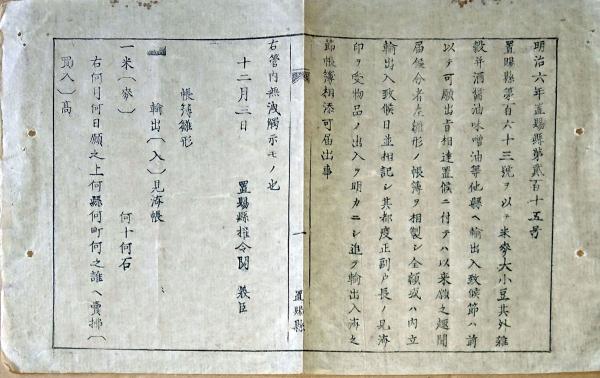 明治六年置賜縣第貳百十五号
置賜縣第百六十三號ヲ以テ米麥大小豆其外雜
穀并酒醤油味噌油等他縣ヘ輸出入致候節ハ詩
以テ可願出旨相達置候ニ付テハ以来願之趣聞
届候分者左雛形ノ帳簿ヲ相製シ全額或ハ内立
輸出入致候日並相記シ其都度正副戸長ノ見済
印ヲ受物品ノ出入ヲ明カニシ追テ輸出入済之
節帳簿相添可届出事
右管内無洩觸示モノ也
十二月三日
置賜縣権令関義臣
帳簿雛形
輸出〔入〕見済帳
一米〔麥〕
何十何石
右何月何日願之上何縣何町何之誰ヘ賣拂〔
買入〕高
一
置賜縣